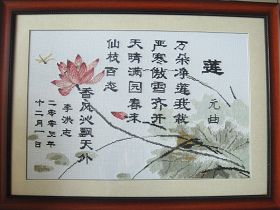 莲
元曲
万朵净莲我栽
严寒傲雪齐开
天晴满园春来
仙枝百态
香风沁飘天外
李洪志
二〇〇五年
十二月一日